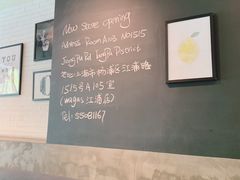 New store opening
Address Room A103 No1515
JiangPu Rd YangPu District
地址:上海市杨浦区江浦路
1515号A105室
(wagas 江浦店)
Tel: 55081167
YOU